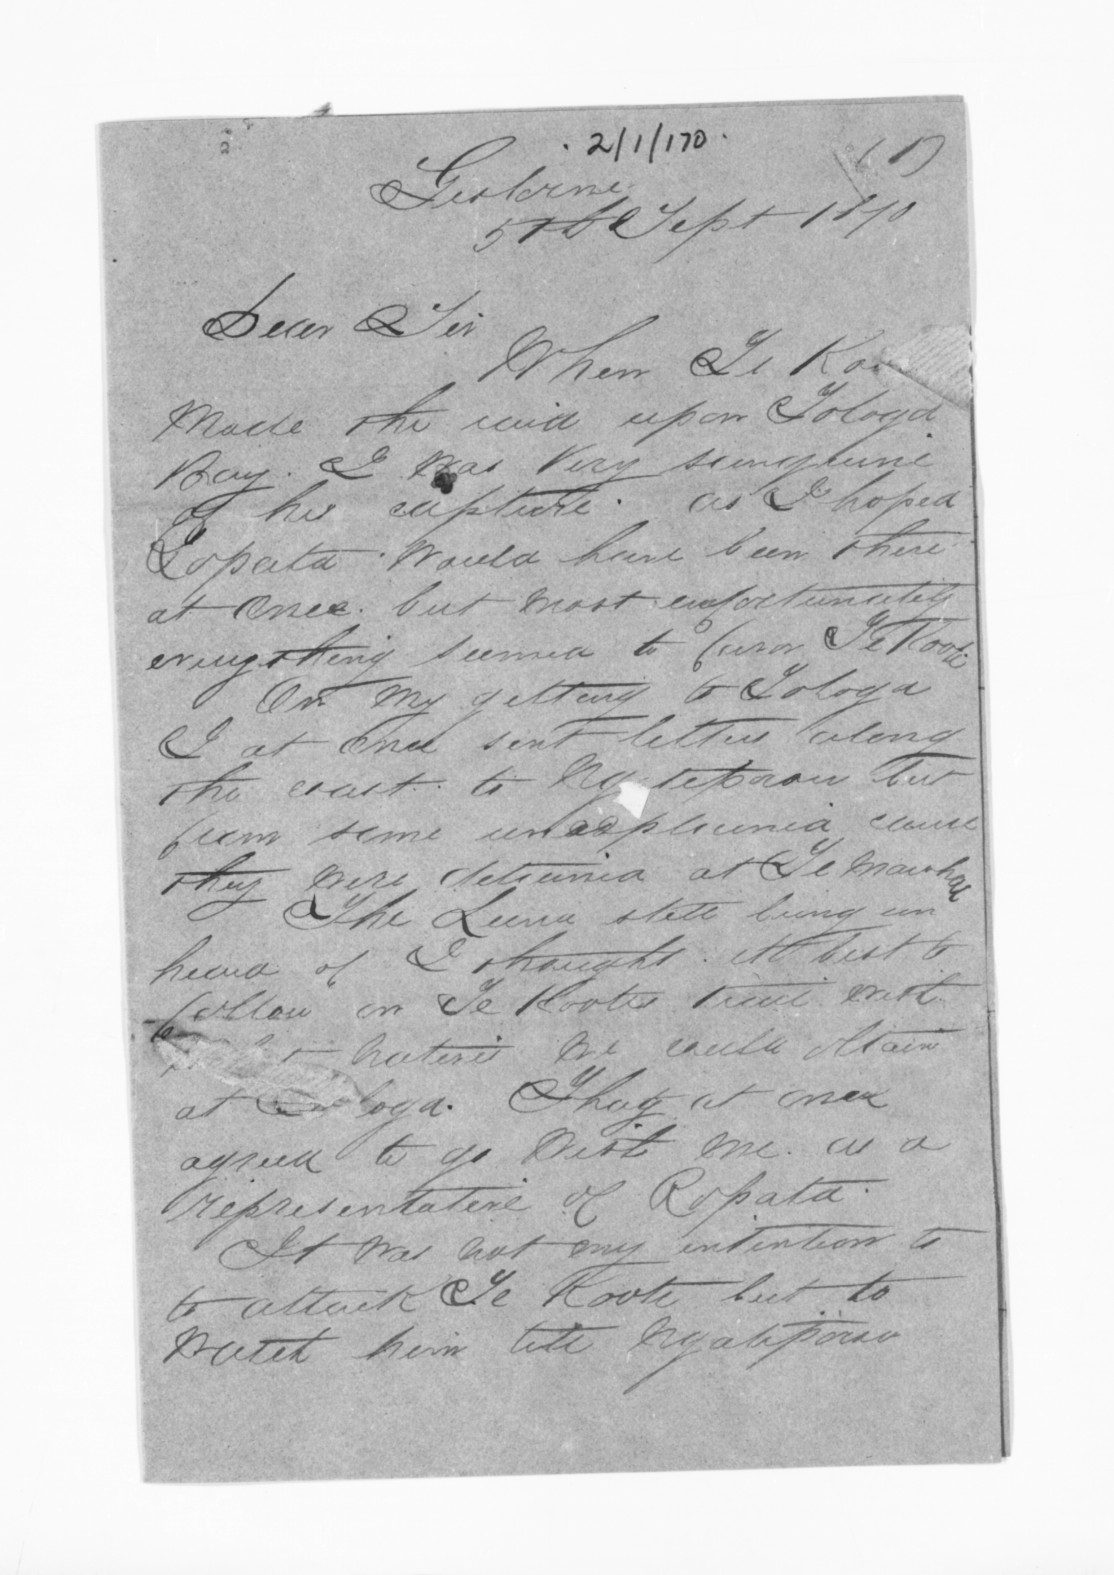 2/1/170.
(1)
Gisborne
5th Sept 1870
Dear Sir
When Te Koo
Made the raid upon Tologa
Bay. I was very sanguine
of his capture. as I hoped
Ropata would have been there
at once. but most unfortunately
everything seemed to favor Te Kooti
On my getting to Tologa
I at once sent letters along
the coast to Ngateporou but
from some unexplained cause
they were detained at Te Mawhai
The Luna still being un
heard of I thought it best to
follow on Te Kootis trail with
natives we could obtain
at Tologa. Thuy at once
agreed to go with me. as a
representative of Ropata.
It was not my intention to
to attack Te Kooti but to
watch him till Ngatiporou